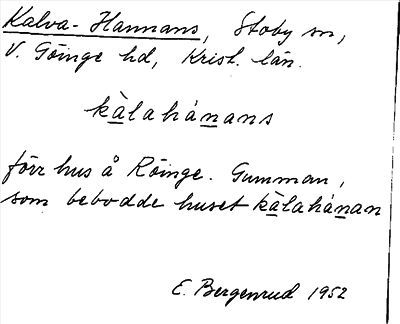 Kalva-Hannans, Stoby sn,
V. Göinge hd, Krist. län.
kàlahánans
förr hus å Röinge. Gumman,
som bebodde huset kàlahánan
E. Bergenrud 1952